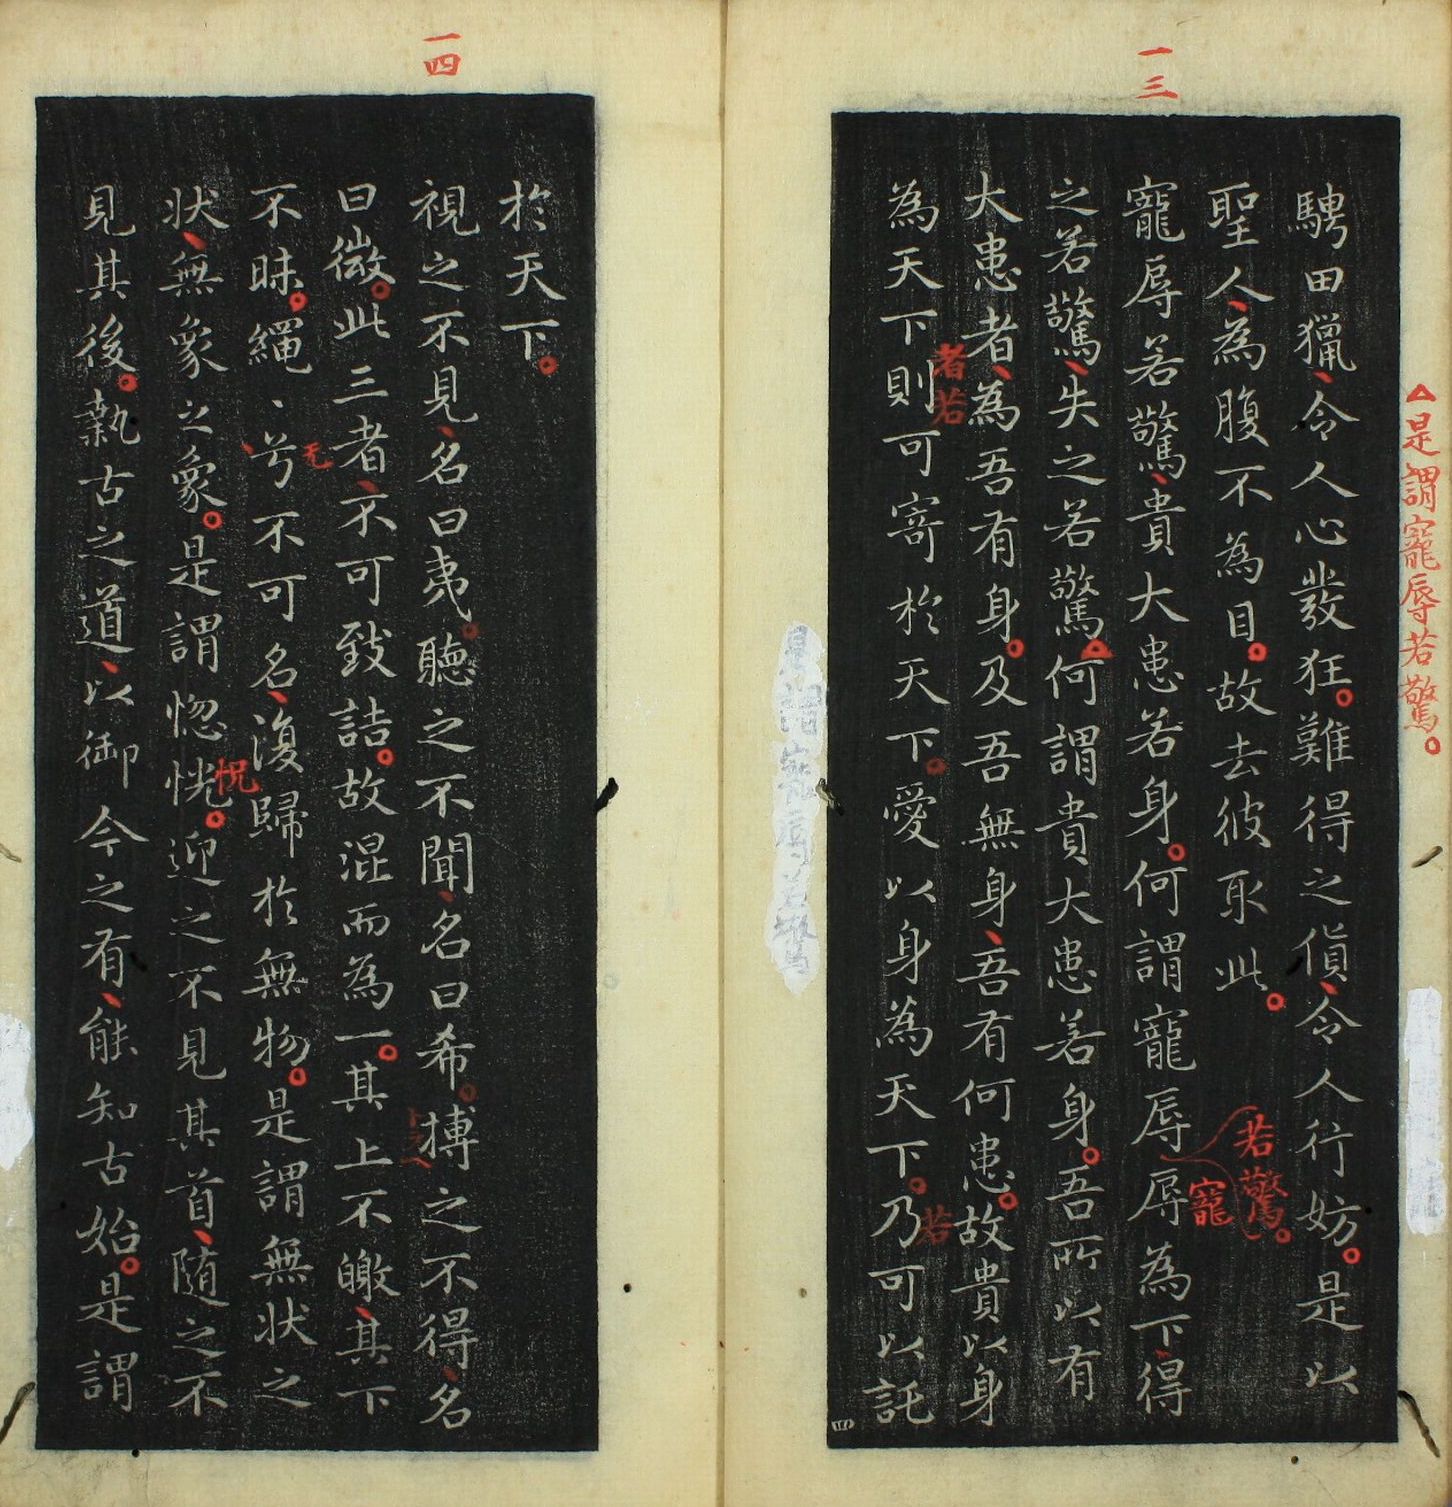 一三
騁田獵、令人心發狂。難得之貨、令人行妨。是以
聖人、為腹不為目。故去彼取此。
寵辱若驚、貴大患若身。何謂寵辱辱為下、得
若驚。
寵
之若驚、失之若驚。何謂貴大患若身。吾所以有
△是謂寵辱若驚。
大患者、為吾有身。及吾無身、吾有何患。故貴以身
為天下則可寄於天下。愛以身為天下。乃可以託
者若
若
一四
於天下。
視之不見、名曰夷。聽之不聞、名曰希。搏之不得、名
曰微。此三者、不可致詰。故混而為一。其上不皦、其下
不昧。繩〻兮不可名、復歸於無物。是謂無狀之
狀、無象之象。是謂惚恍。迎之不見其首、随之不
怳
見其後。執古之道、以御今之有、能知古始。是謂